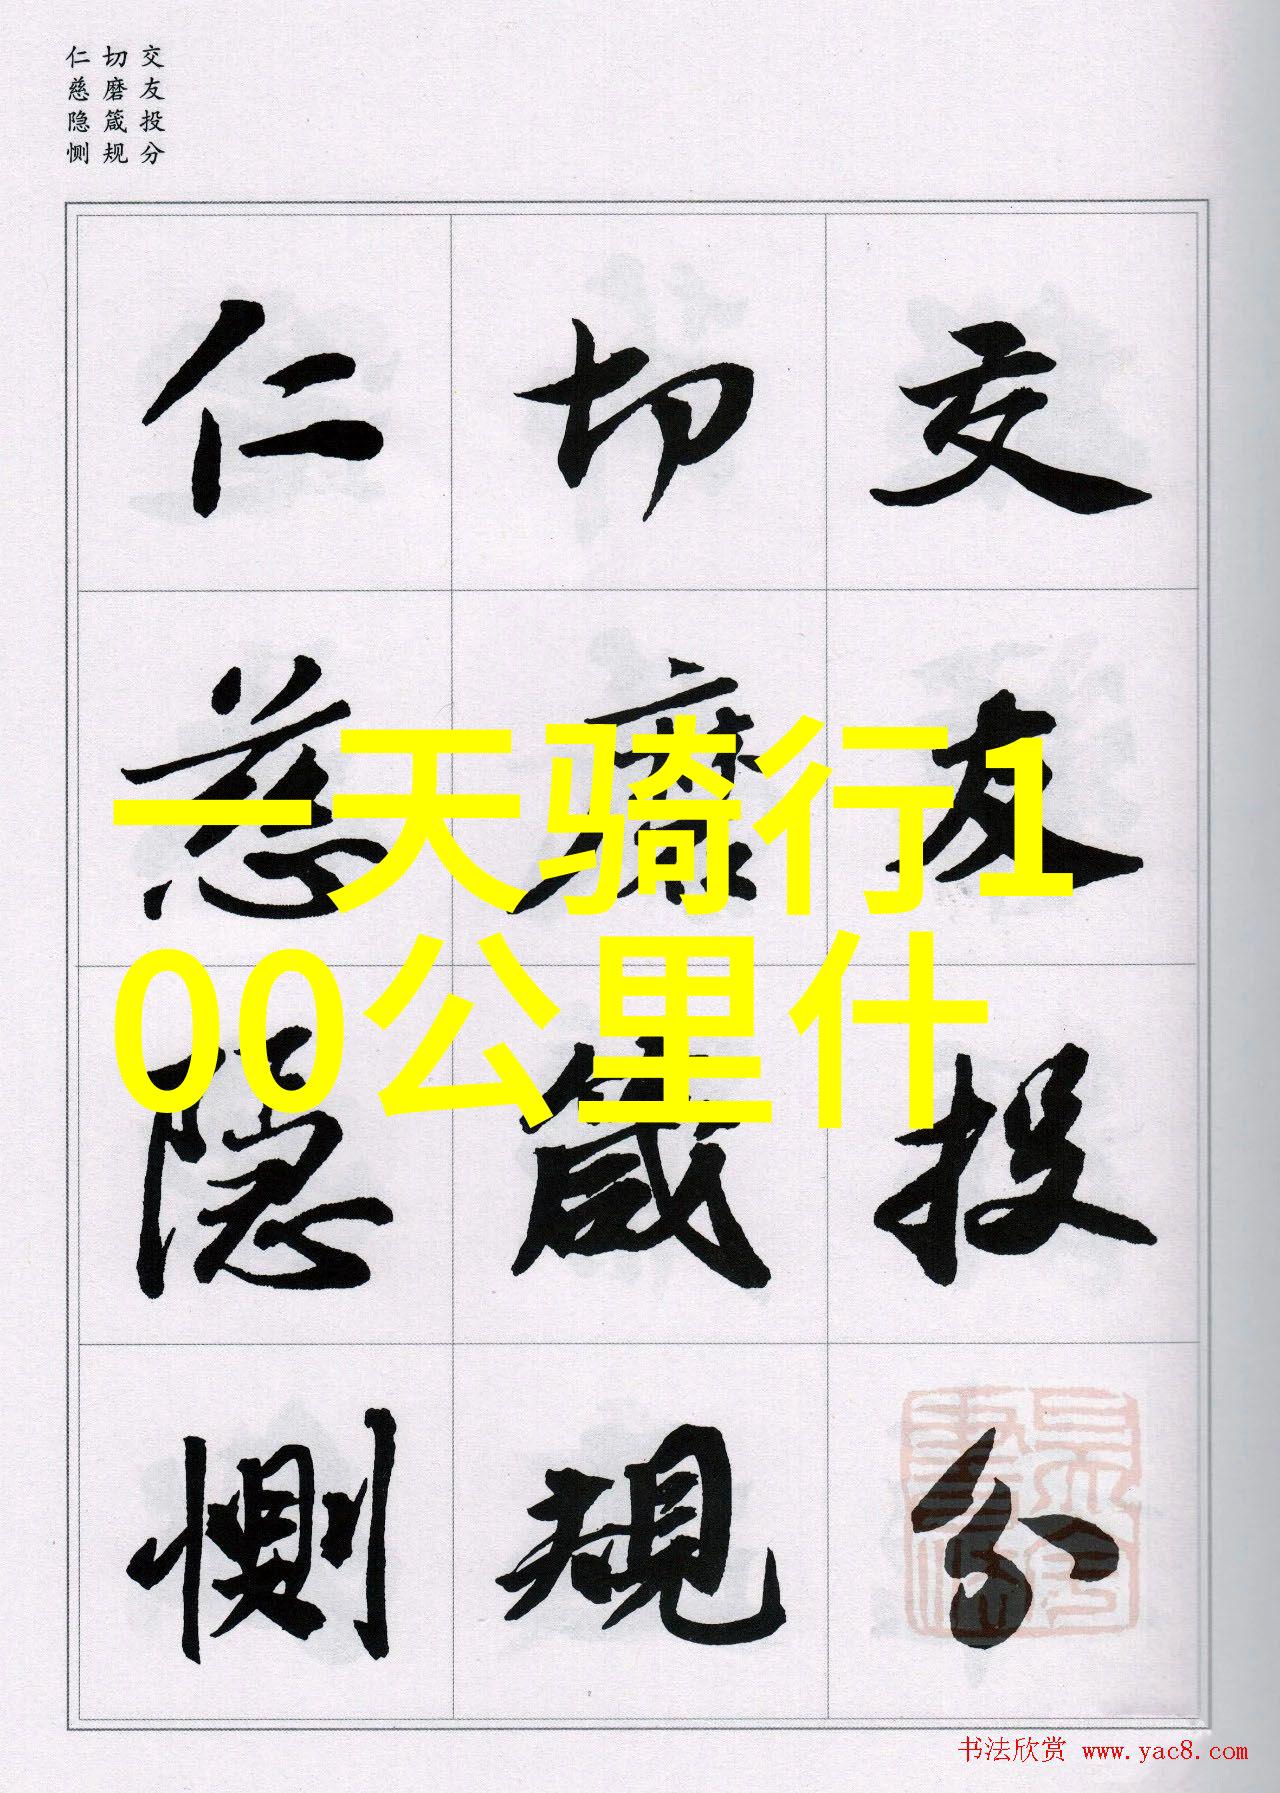 交友投分
切磨箴规
仁慈隐恻
交友投分
切磨箴规
仁慈隐恻
一天骑行1
00公里什
书法欣赏 www.yac8.com